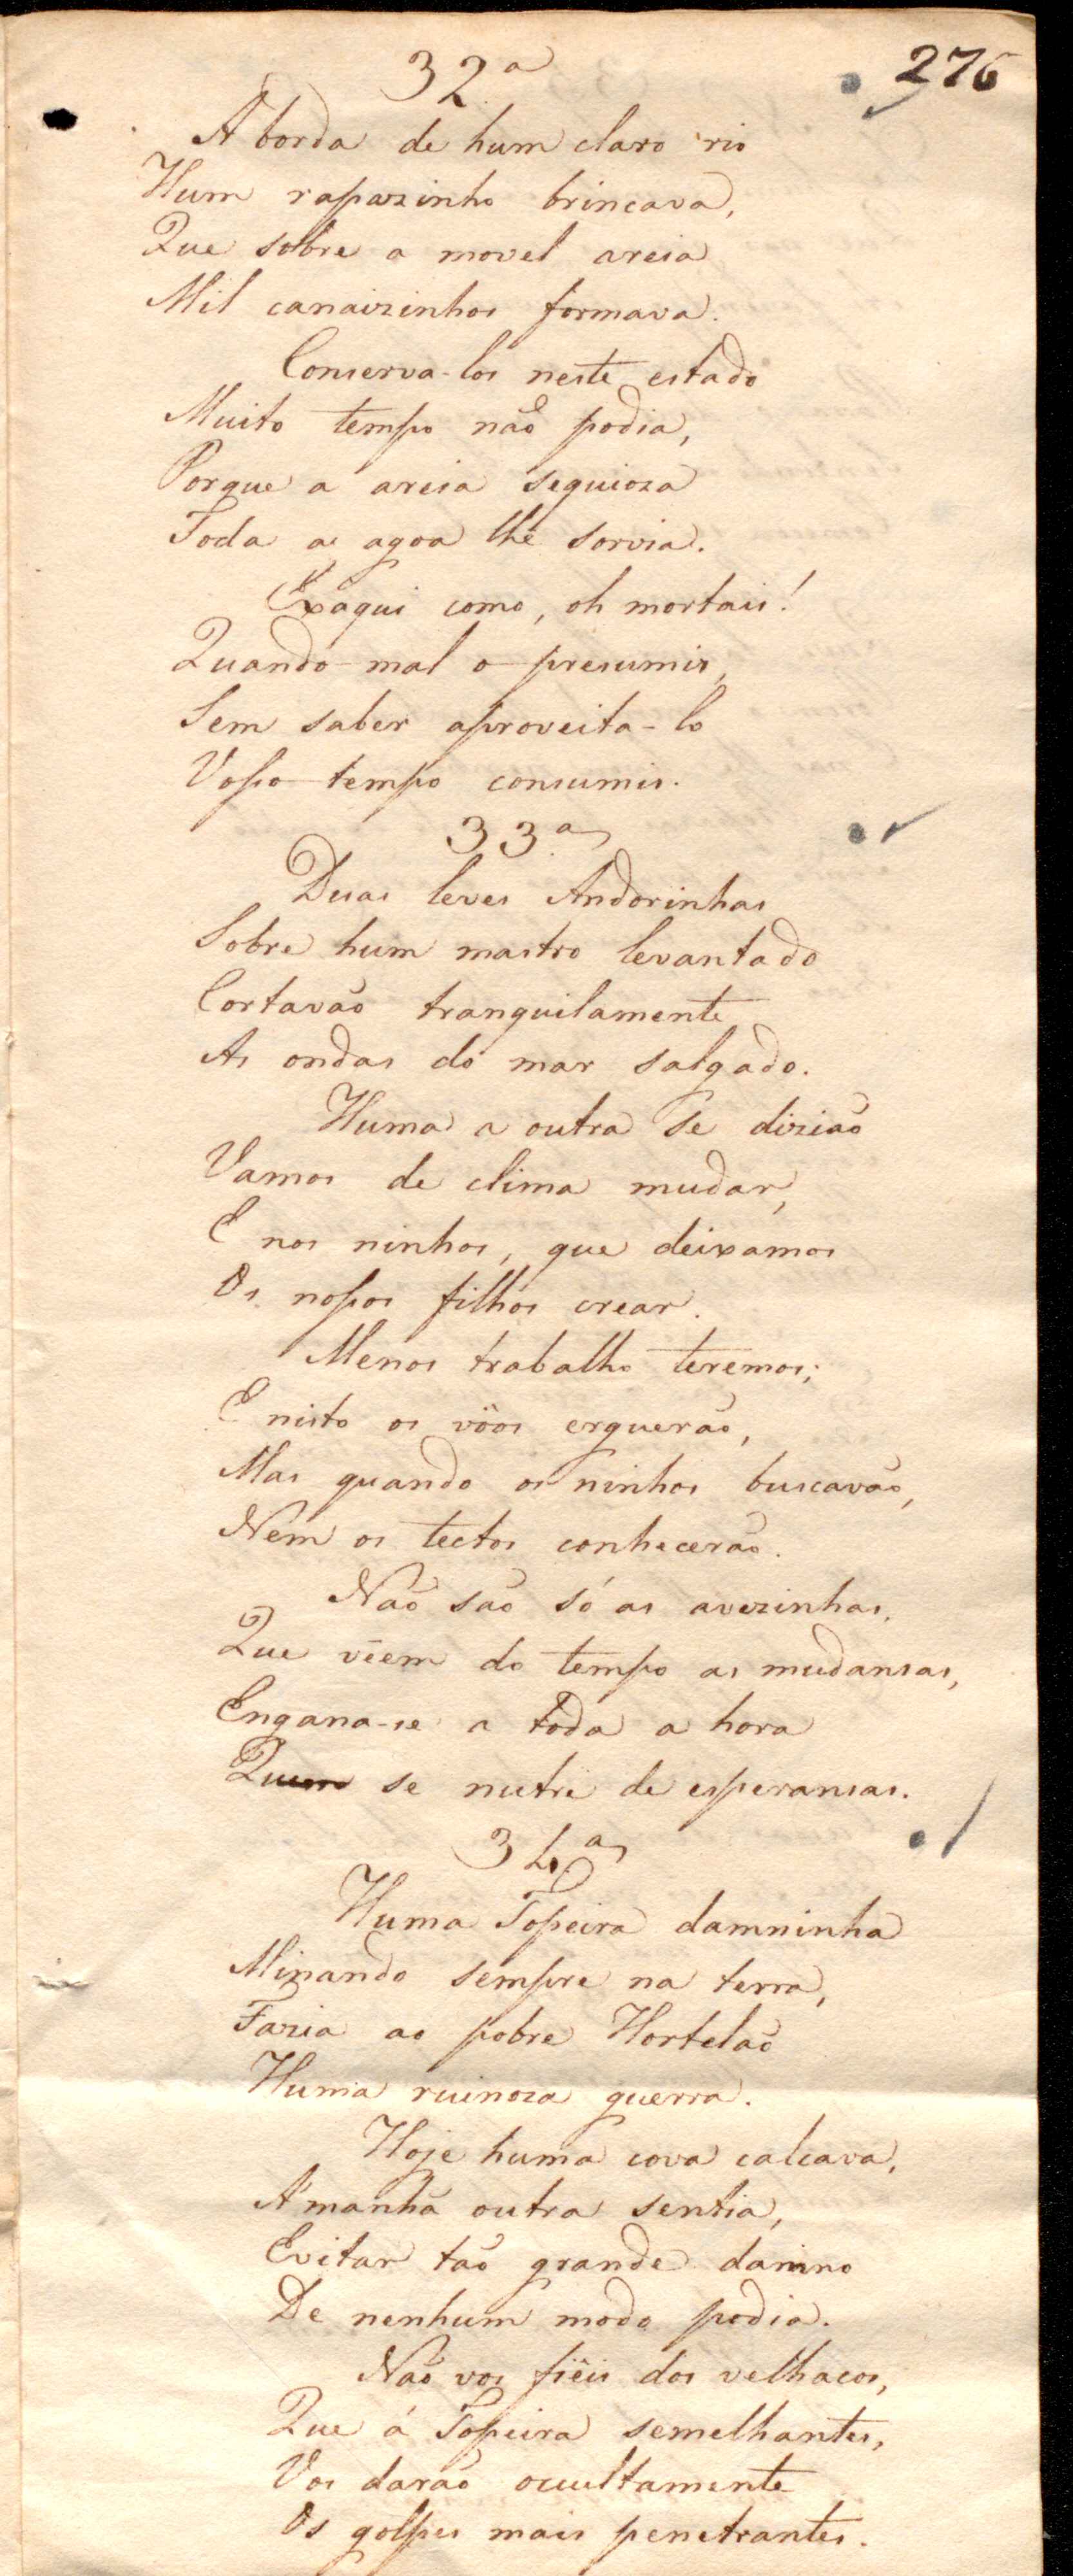 276
32ª
A borda de hum claro rio
Hum rapazinho brincava,
Que sobre a movel areia
Mil canaizinhos formava.
Conserva-los neste estado
Muito tempo não podia,
Porque a areia sequioza
Toda a agoa lhe sorvia.
Exaqui como, oh mortais!
Quando mal o presumis,
Sem saber aproveita-lo
Vosso tempo consumis.
33ª
Duas leves Andorinhas
Sobre hum mastro levantado
Cortavão tranquilamente
As ondas do mar salgado.
Huma a outra se dizião
Vamos de clima mudar,
E nos ninhos, que deixamos
Os nossos filhos crear.
Menos trabalho teremos;
E nisto os vôos erguerão,
Mas quando os ninhos buscavão,
Nem os tectos conhecerão.
Não são só as avezinhas,
Que vêem do tempo as mudansas,
Engana-se a toda a hora
Quem se nutre de esperansas.
34ª
Huma Topeira damninha
Minando sempre na terra,
Fazia ao pobre Hortelão
Huma ruinoza guerra.
Hoje huma cova calcava,
A'manhã outra sentia,
Evitar tão grande damno
De nenhum modo podia.
Não vos fiëis dos velhacos,
Que á Topeira semelhantes,
Vos darão ocultamente
Os golpes mais penetrantes.